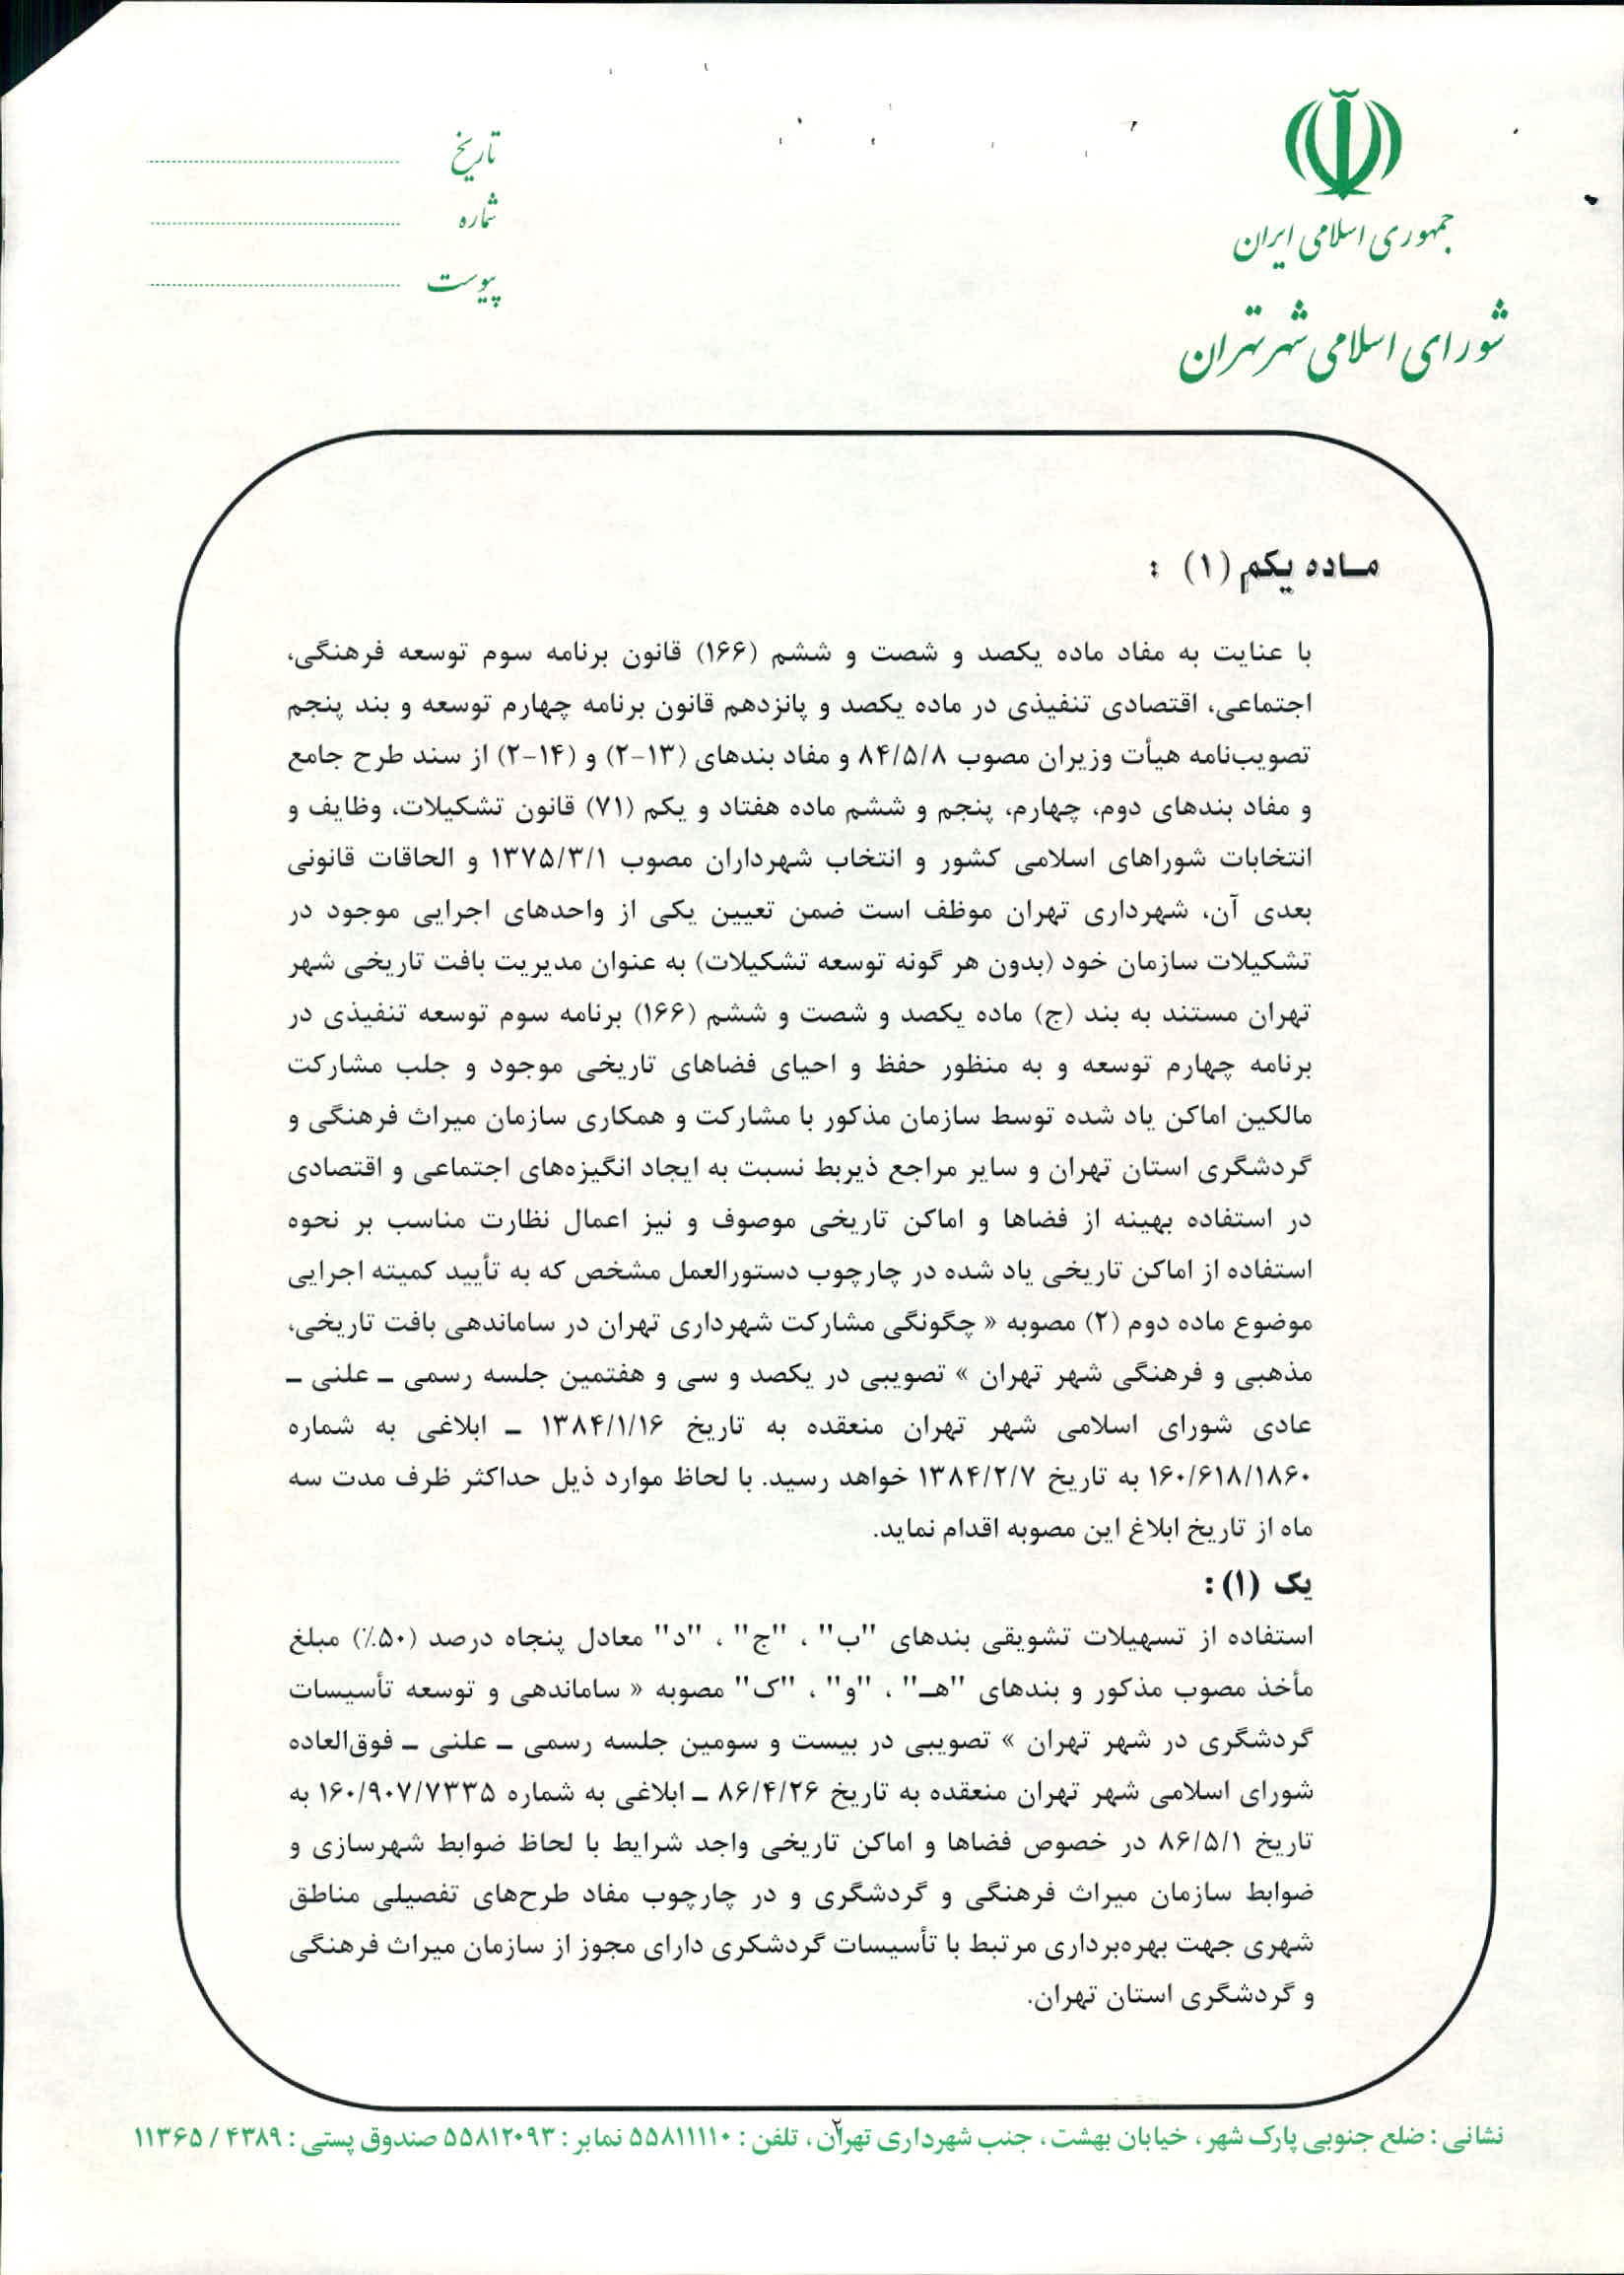 جمهوری اسلامی ایران
شورای اسلامی شهر تهران
تاریخ
شماره
پیوست
مـاده یکم (۱) :
با عنایت به مفاد ماده یکصد و شصت و ششم (۱۶۶) قانون برنامه سوم توسعه فرهنگی،
اجتماعی، اقتصادی تنفیذی در ماده یکصد و پانزدهم قانون برنامه چهارم توسعه و بند پنجم
تصویب‌نامه هیأت وزیران مصوب ۸۴/۵/۸ و مفاد بندهای (۱۳-۲) و (۱۴-۲) از سند طرح جامع
و مفاد بندهای دوم، چهارم، پنجم و ششم ماده هفتاد و یکم (۷۱) قانون تشکیلات، وظایف و
انتخابات شوراهای اسلامی کشور و انتخاب شهرداران مصوب ۱۳۷۵/۳/۱ و الحاقات قانونی
بعدی آن، شهرداری تهران موظف است ضمن تعیین یکی از واحدهای اجرایی موجود در
تشکیلات سازمان خود (بدون هر گونه توسعه تشکیلات) به عنوان مدیریت بافت تاریخی شهر
تهران مستند به بند (ج) ماده یکصد و شصت و ششم (۱۶۶) برنامه سوم توسعه تنفیذی در
برنامه چهارم توسعه و به منظور حفظ و احیای فضاهای تاریخی موجود و جلب مشارکت
مالکین اماکن یاد شده توسط سازمان مذکور با مشارکت و همکاری سازمان میراث فرهنگی و
گردشگری استان تهران و سایر مراجع ذیربط نسبت به ایجاد انگیزه‌های اجتماعی و اقتصادی
در استفاده بهینه از فضاها و اماکن تاریخی موصوف و نیز اعمال نظارت مناسب بر نحوه
استفاده از اماکن تاریخی یاد شده در چارچوب دستورالعمل مشخص که به تأیید کمیته اجرایی
موضوع ماده دوم (۲) مصوبه « چگونگی مشارکت شهرداری تهران در ساماندهی بافت تاریخی،
مذهبی و فرهنگی شهر تهران » تصویبی در یکصد و سی و هفتمین جلسه رسمی ـ علنی ـ
عادی شورای اسلامی شهر تهران منعقده به تاریخ ۱۳۸۴/۱/۱۶ ـ ابلاغی به شماره
۱۶۰/۶۱۸/۱۸۶۰ به تاریخ ۱۳۸۴/۲/۷ خواهد رسید. با لحاظ موارد ذیل حداکثر ظرف مدت سه
ماه از تاریخ ابلاغ این مصوبه اقدام نماید.
یک (۱):
استفاده از تسهیلات تشویقی بندهای "ب" ، "ج" ، "د" معادل پنجاه درصد (۵۰٪) مبلغ
مأخذ مصوب مذکور و بندهای "هـ" ، "و" ، "ک" مصوبه « ساماندهی و توسعه تأسیسات
گردشگری در شهر تهران » تصویبی در بیست و سومین جلسه رسمی ـ علنی ـ فوق‌العاده
شورای اسلامی شهر تهران منعقده به تاریخ ۸۶/۴/۲۶ ـ ابلاغی به شماره ۱۶۰/۹۰۷/۷۳۳۵ به
تاریخ ۸۶/۵/۱ در خصوص فضاها و اماکن تاریخی واجد شرایط با لحاظ ضوابط شهرسازی و
ضوابط سازمان میراث فرهنگی و گردشگری و در چارچوب مفاد طرح‌های تفصیلی مناطق
شهری جهت بهره‌برداری مرتبط با تأسیسات گردشکری دارای مجوز از سازمان میراث فرهنگی
و گردشگری استان تهران.
۲
نشانی : ضلع جنوبی پارک شهر ، خیابان بهشت ، جنب شهرداری تهران ، تلفن : ۵۵۸۱۱۱۱۰ نمابر : ۵۵۸۱۲۰۹۳ صندوق پستی : ۴۳۸۹ / ۱۱۳۶۵